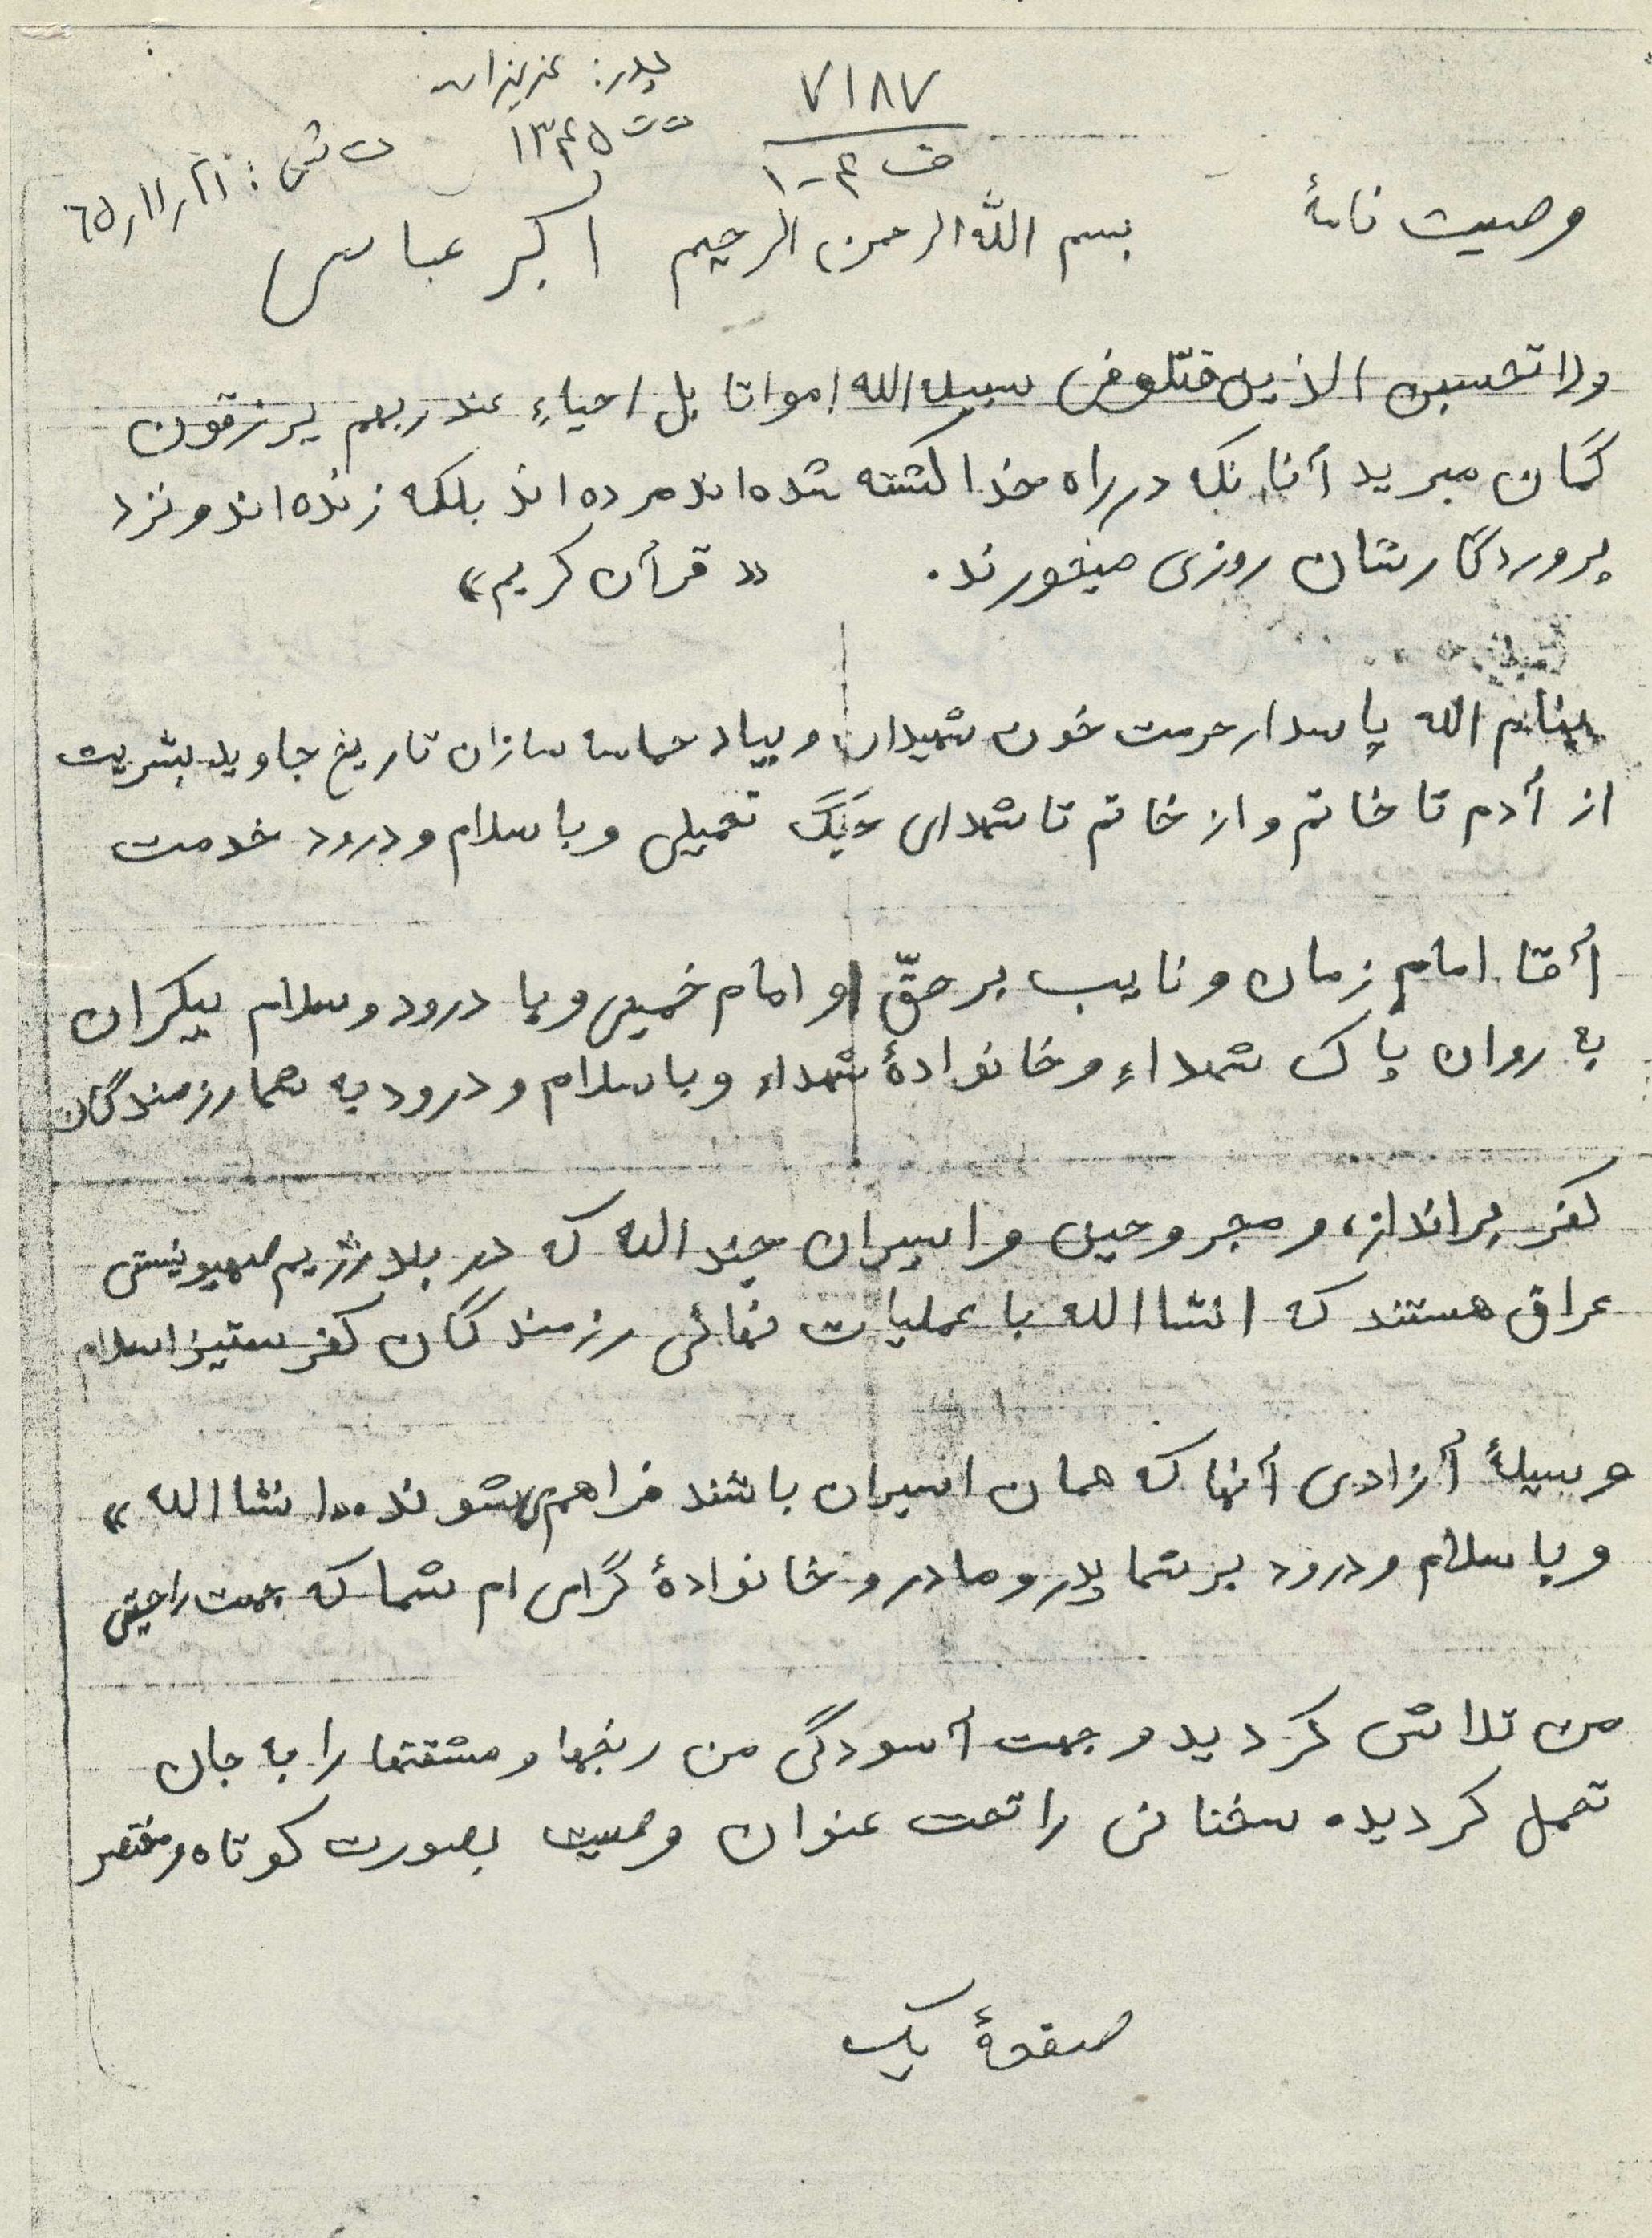 پدر: عزیزاله
ت ت ۱۳۴۵
۷۱۸۷
ف ۴-۱
ت ش: ۶۵/۱۱/۲۱
وصیت نامۀ
بسم الله الرحمن الرحیم اکبر عباسی
ولا تحسبن الذین قتلو فی سبیل الله امواتا بل احیاءِ عند ربهم یرزقون
گمان مبرید آنانکه در راه خدا کشته شده‌اند مرده‌اند بلکه زنده‌اند و نزد
پروردگارشان روزی میخورند. «قرآن کریم»
بنام الله پاسدار حرمت خون شهیدان و بیاد حماسه سازان تاریخ جاوید بشریت
از آدم تا خاتم و از خاتم تا شهدای جنگ تحمیلی و با سلام و درود خدمت
آقا امام زمان و نایب بر حقّ او امام خمینی و با درود و سلام بیکران
به روان پاک شهداءِ و خانوادۀ شهداء و با سلام و درود به همه رزمندگان
کفر برانداز، و مجروحین و اسیران جند الله که در بلاد رژیم صهیونیستی
عراق هستند که انشاالله با عملیات نهائی رزمندگان کفر ستیز اسلام
وسیلۀ آزادی آنها که همان اسیران باشند فراهم میشوند.. انشاالله»
و با سلام و درود بر شما پدر و مادر و خانوادۀ گرامی ام شما که جهت راحتی
من تلاش کردید و جهت آسودگی من رنجها و مشقتها را به جان
تحمل کردیده سخنانی را تحت عنوان وصیت بصورت کوتاه و مختصر
صفحۀ یک